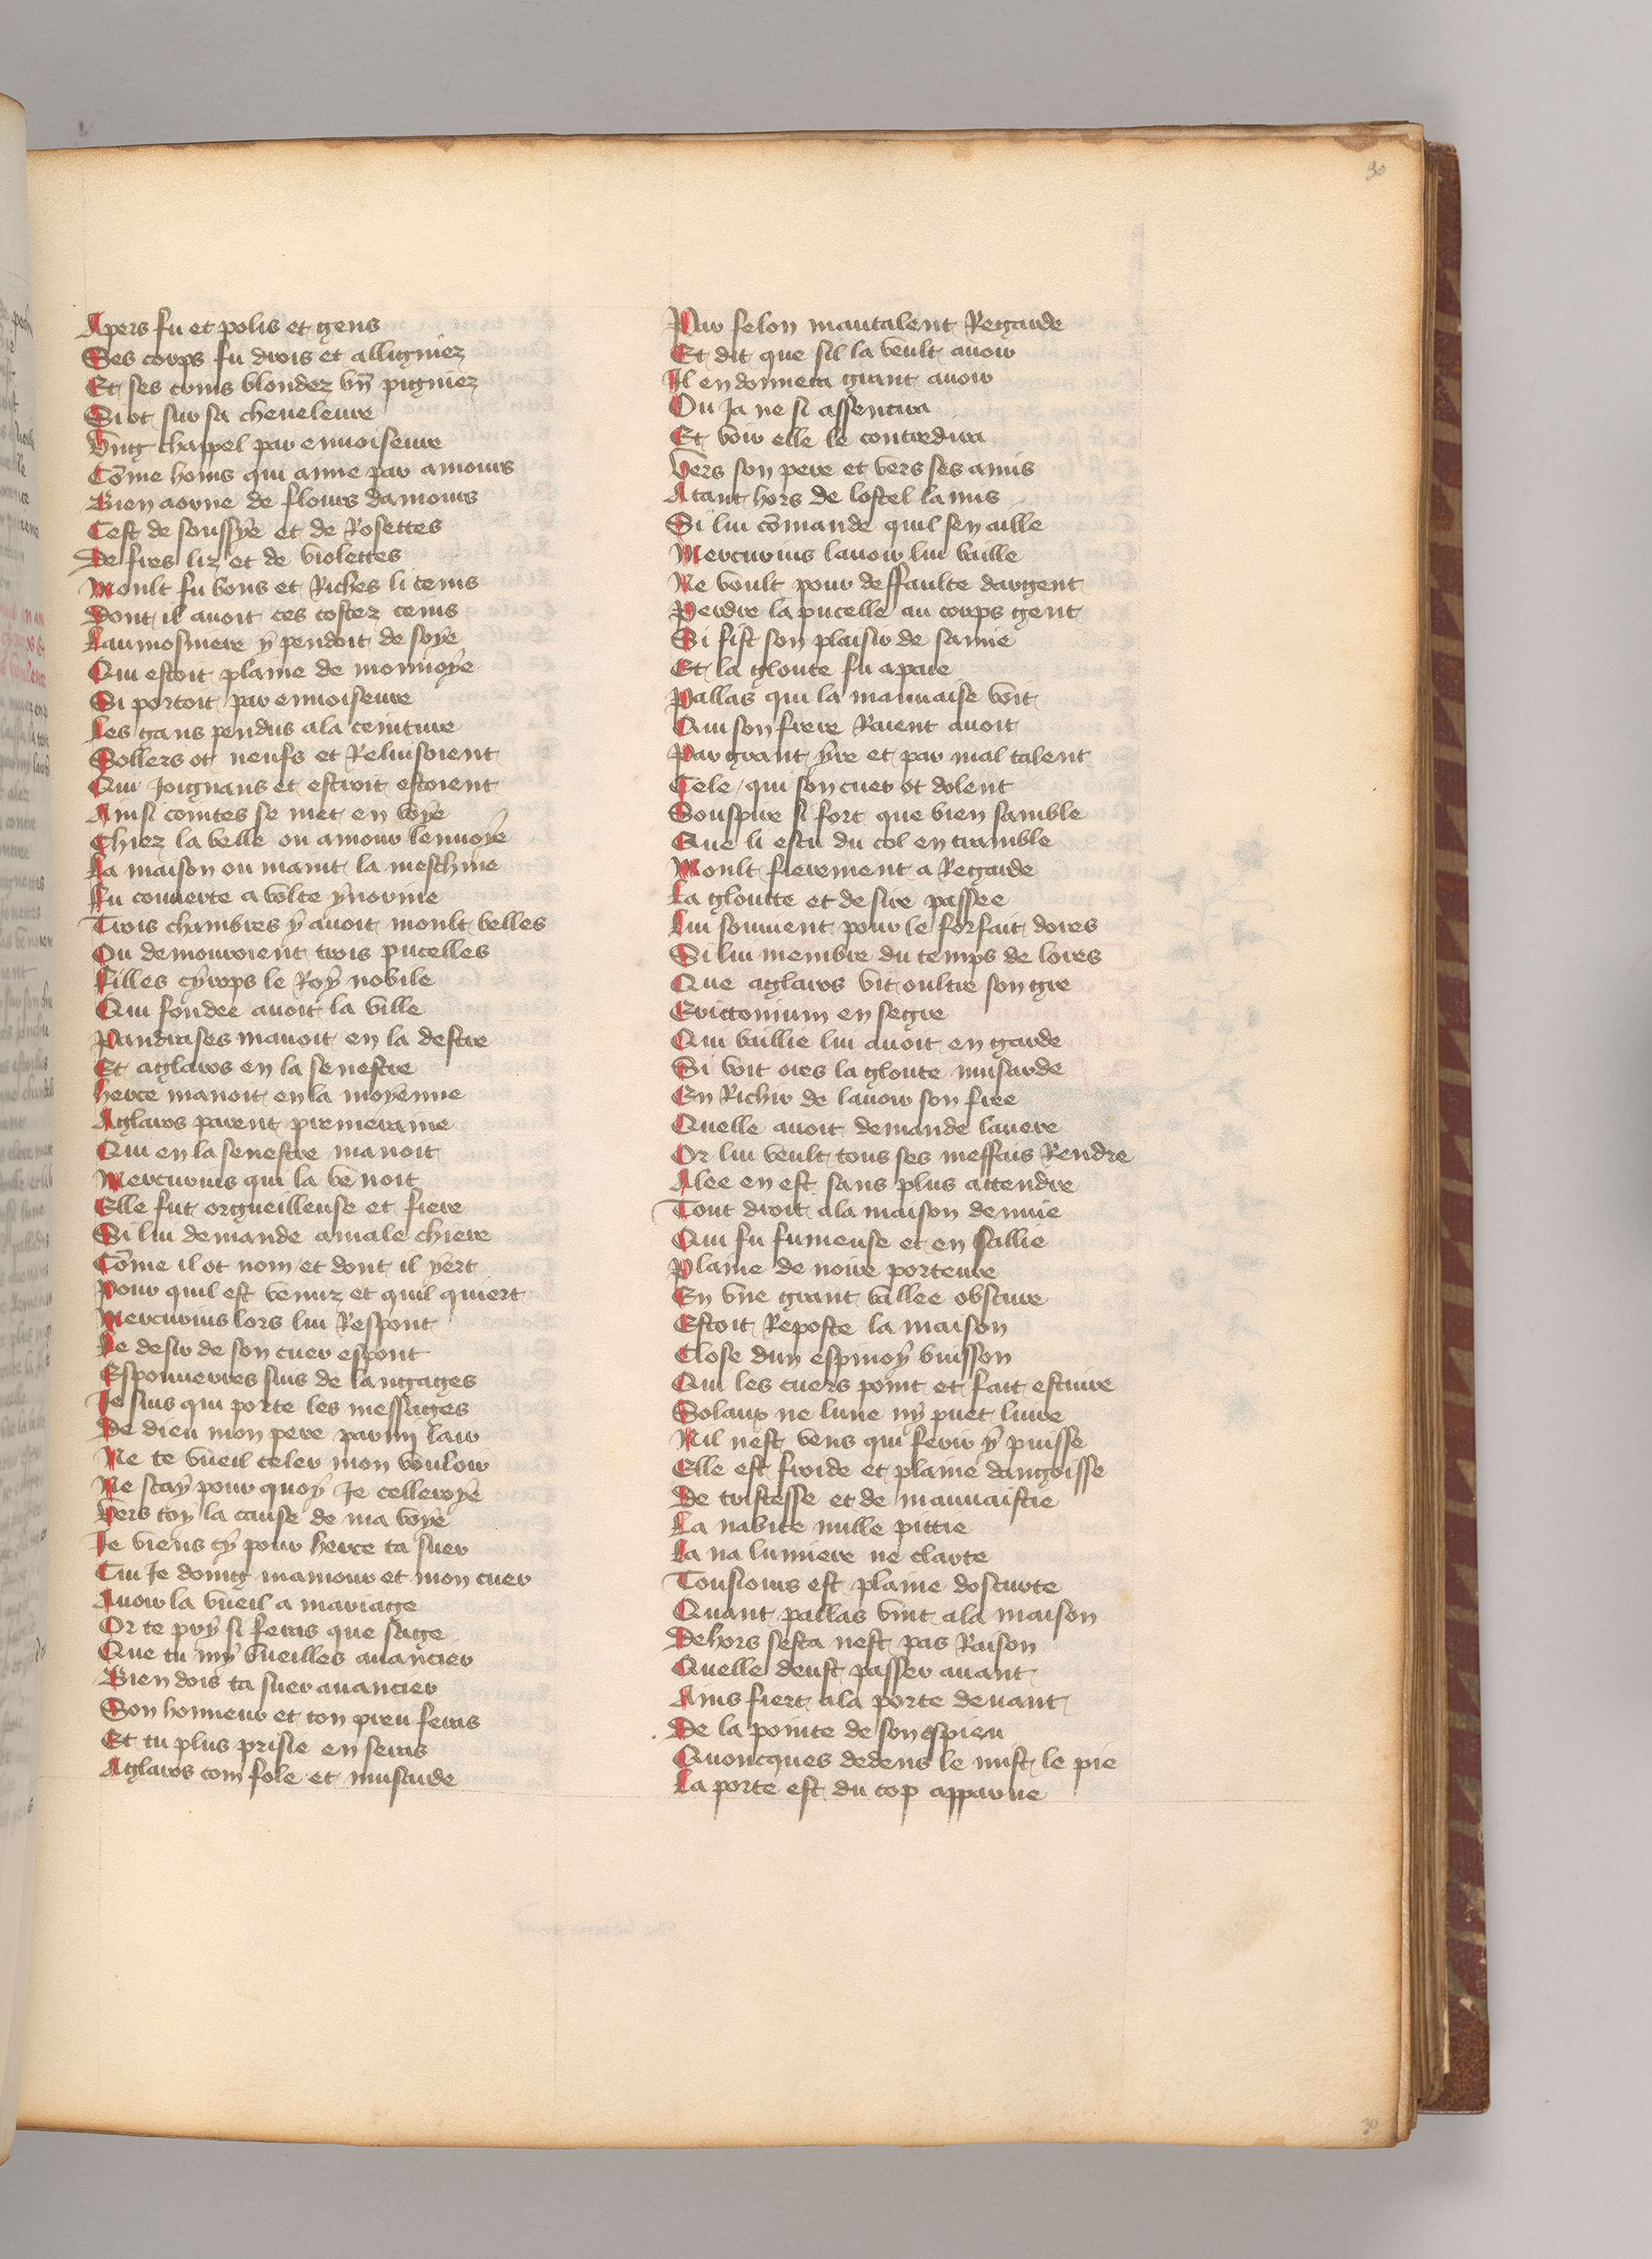 30
Apers fu et polis et gens
Ses corps fu drois et alligniez
Et ses crins blondez bn̄ pigniez
Si ot sur sa cheueleure
Vng chappel par enuoiseure
Cōme homs qui aime par amours
Bien aorne de flours damours
Cest de soussye et de Rosettes
De fres liz et de violettes
Moult fu bons et Riches li ceins
Dont il auoit ces costez ceins
Laumosniere y pendoit de soye
Qui estoit plaine de monnoye
Si portoit par enuoiseure
Les gans pendus ala ceinture
Sollers ot neufs et Reluisoient
Qui Joignans et estroit estoient
Ainsi cointes se met en voye
Chiez la belle ou amour lenuoye
La maison ou maint la meschine
Fu couuerte a volte yuorine
Trois chambres y auoit moult belles
Ou demouroient trois pucelles
Filles cyrops le Roy nobile
Qui fondee auoit la ville
Pandrases manoit en la destre
Et aglaros en la senestre
herce manoit en la moyenne
Aglaros parent premeraine
Qui en la senestre manoit
Mercurius qui la venoit
Elle fut orgueilleuse et fiere
Si lui demande a male chiere
Cōme il ot nom et dont il yert
Pour quil est venuz et quil quiert
Mercurius lors lui Respont
Le desir de son cuer espont
Esponnerres suis de langages
Je suis qui porte les messages
De dieu mon pere parmy lair
Ne te vueil celer mon vouloir
Ne scay pour quoy Je celleroye
Vers toy la cause de ma voye
Je viens cy pour herce ta suer
Cui Je doing mamour et mon cuer
Auoir la vueil a mariage
Or te pry si feras que sage
Que tu my vueilles auancier
Bien dois ta suer auancier
Son honneur et ton preu feras
Et tu plus prisie en seras
Aglaros com fole et musarde
Par felon mautalent Regarde
Et dit que sil la veult auoir
Il en donnera grant auoir
Ou Ja ne si assentira
Et voir elle le contredira
Vers son pere et vers ses amis
Atant hors de lostel la mis
Si lui cōmande quil sen aille
Mercurius lauoir lui baille
Ne voult pour deffaulte dargent
Perdre la pucelle au corps gent
Si fist son plaisir de samie
Et la gloute fu apaie
Pallas qui la mauuaise voit
Qui son frere Raient auoit
Par grant yre et par mal talent
Cele qui son cuer ot dolent
Souspire si fort que bien samble
Que li escu du col en tramble
Moult fierement a Regarde
La gloutte et de sire passee
Lui souuient pour le forfait dores
Si lui membre du temps de lores
Que aglaros vit oultre son gre
Erictonium en segre
Qui baillie lui auoit en garde
Si voit ores la gloute musarde
En Richir de lauoir son frere
Quelle auoit demande lauere
Or lui veult tous ses meffais Rendre
Alee en est sans plus attendre
Tout droit ala maison denuie
Qui fu fumeuse et en sallie
Plaine de noire porteure
En vne grant vallee obscure
Estoit Reposte la maison
Close dun espinoy buisson
Qui les cuers point et fait escuire
Solaus ne lune ny puet luire
Nil nest vens qui ferir y puisse
Elle est froide et plaine dangoisse
De tristesse et de mauuaistie
La nabite nulle pittie
La na lumiere ne clarte
Tousiours est plaine doscurte
Quant pallas vint ala maison
Dehors sesta nest pas Raison
Quelle deust passer auant
Ains fiert ala porte deuant
De la pointe de son espieu
Quoncques dedens le mist le pie
La porte est du cop apparue
30